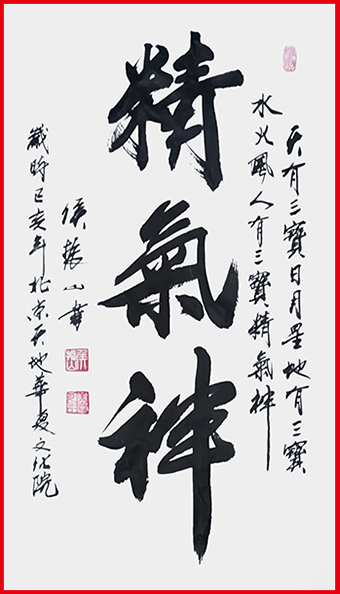 天有三寶日月星地有三寶
水火風人有三寶精氣神
精氣神
侯山書
歲時己亥年北京天地華夏文化院